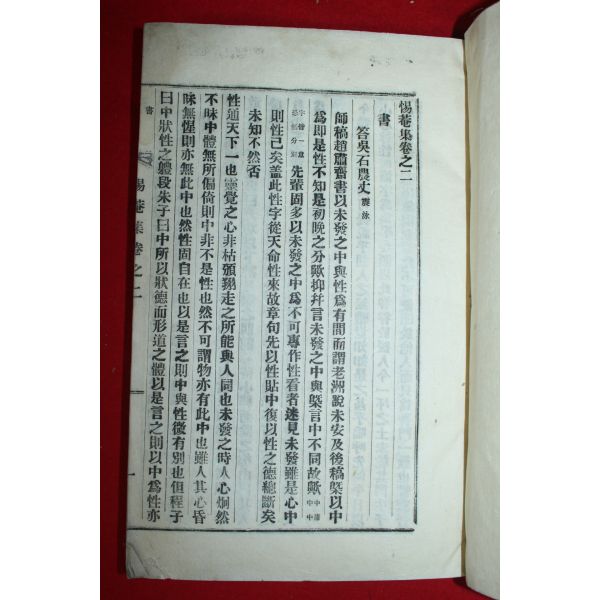 惕菴集卷之二
書
答吳石農丈 震泳
師稿趙肅齋書以未發之中與性爲有間而謂老洲說未安及後稿槩以中
爲即是性不知是初晚之分歟抑幷言未發之中與槩言中不同故歟 中庸中
先輩固多以未發之中爲不可專作性看者迷見未發雖是心中
則性已矣盖此性字從天命性來故章句先以性貼中復以性之德總斷矣
未知不然否
性通天下一也靈覺之心非枯頑翔走之所能與人同也未發之時人心炯然
不昧中體無所偏倚則中非不是性也然不可謂物亦有此中也雖人其心昏
昧無惺則亦無此中也然性固自在也以是言之則中與性微有別也但程子
曰中狀性之體段朱子曰中所以狀德而形道之體以是言之則以中爲性亦
書
惕菴集卷之二
一